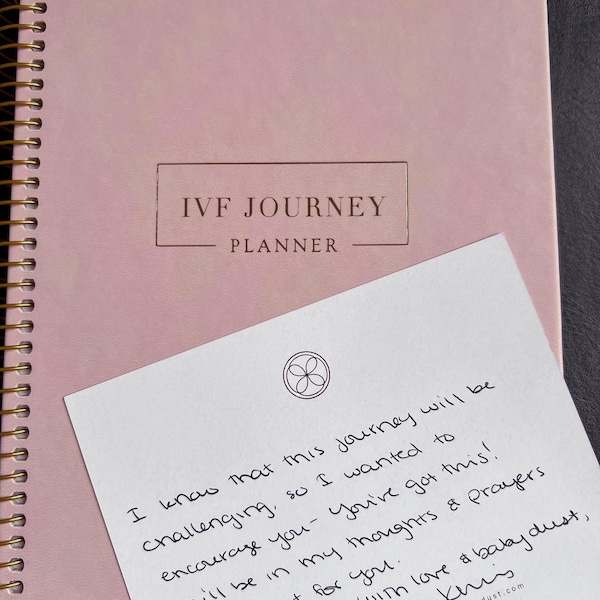 IVF JOURNEY
PLANNER
I know that this journey will be
challenging, so I wanted to
encourage you - You've got this!
will be in my thoughts & prayers
for you.
with love & baby dust,
dust.com